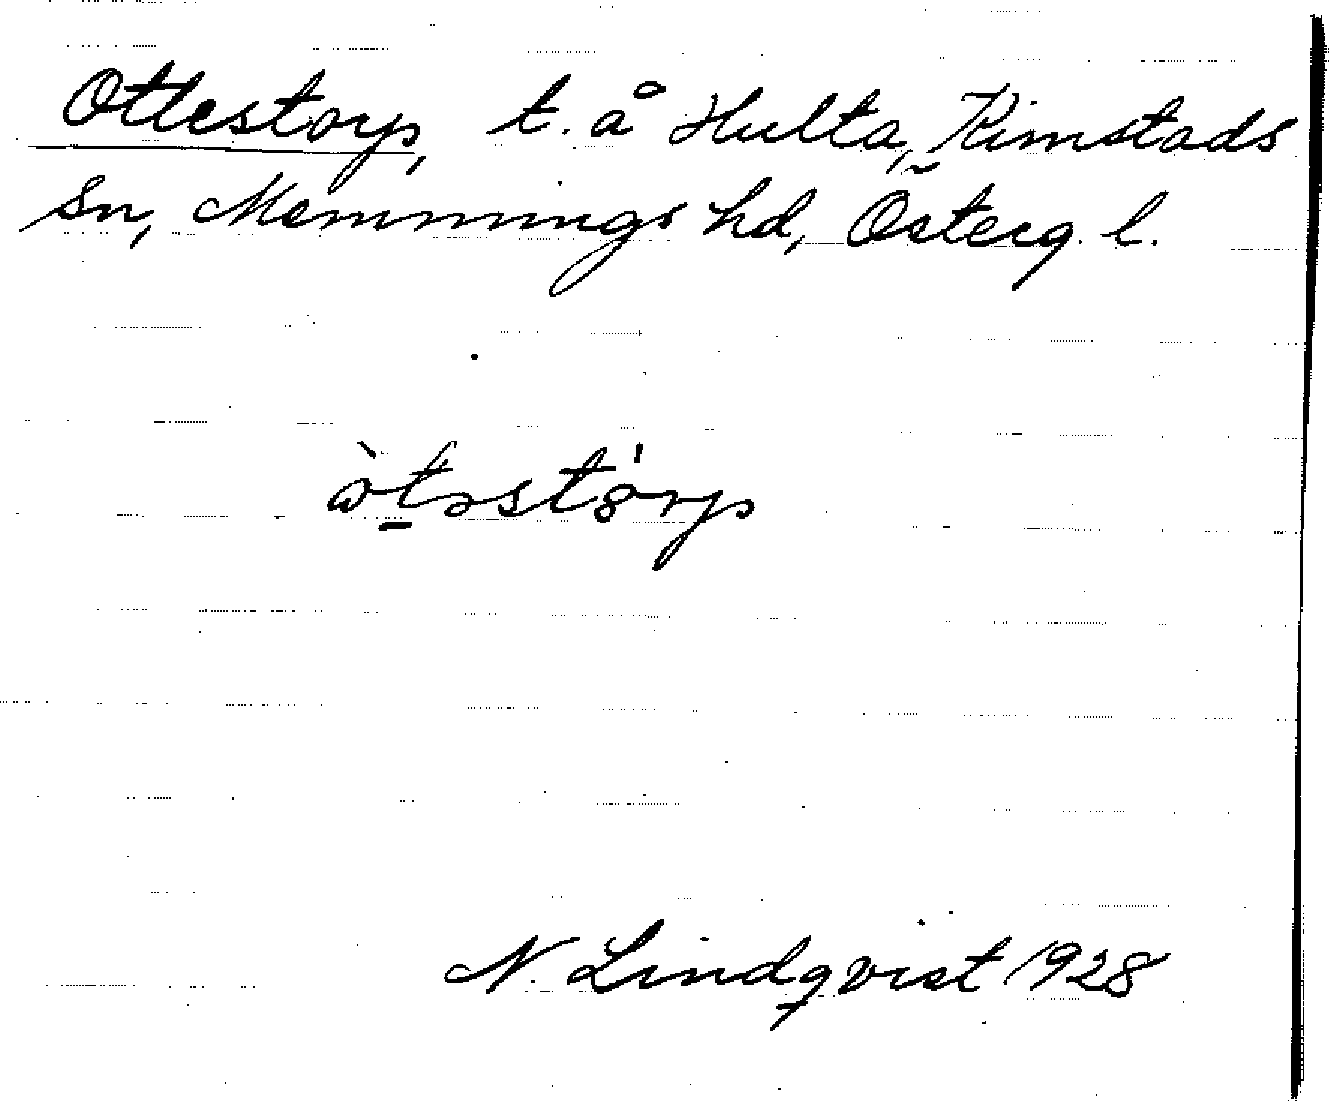 Ottestorp, t. å Hulta, Kimstads
sn, Memmings hd, Österg. l.
òt̲əstȯ́rp
N. Lindqvist 1928